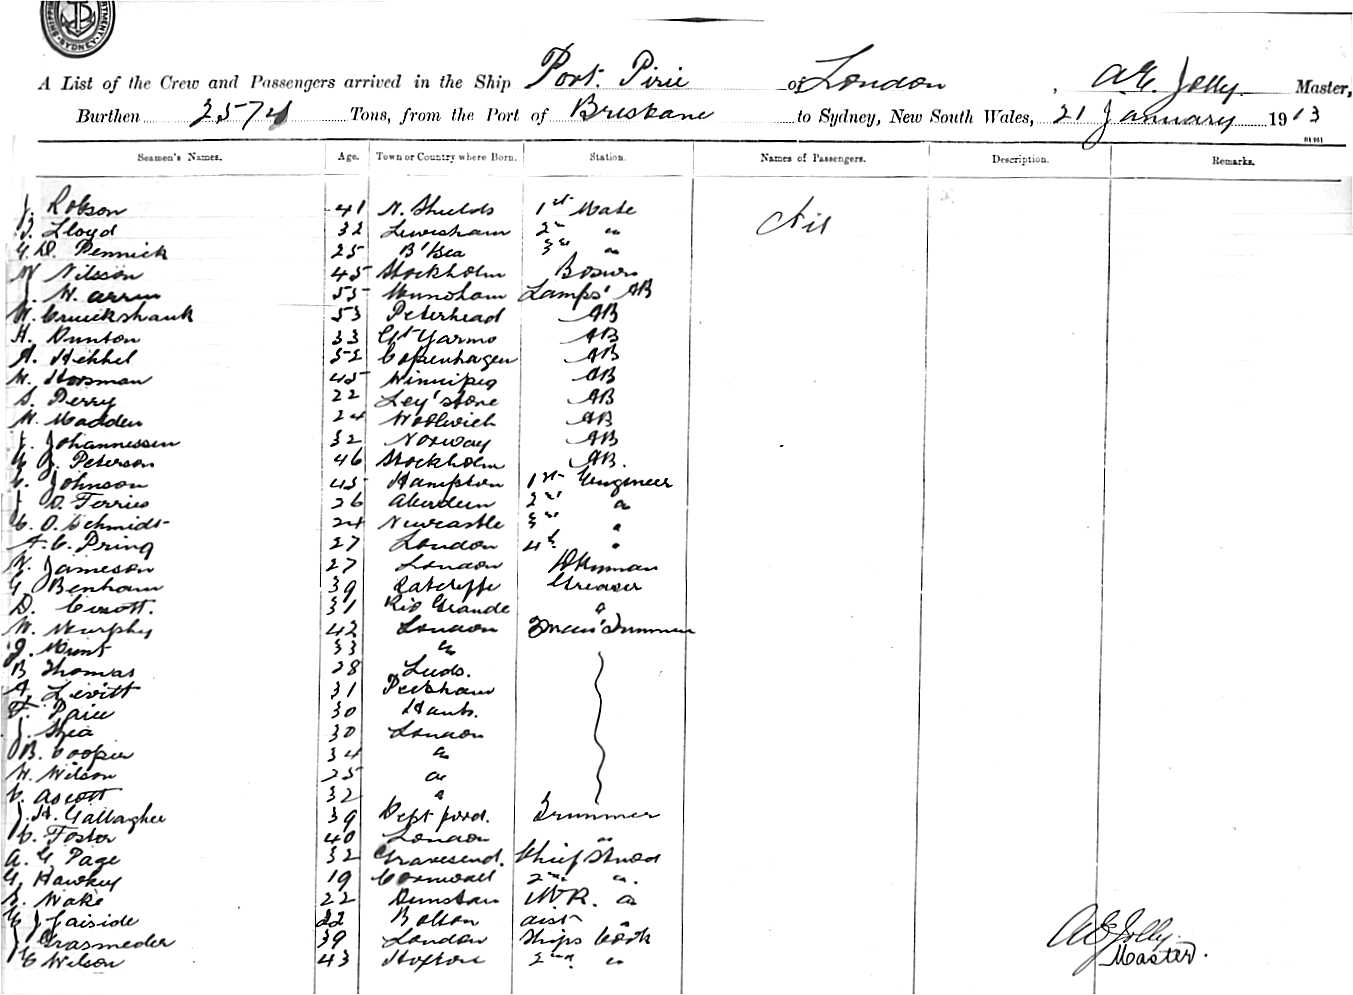 SYDNEY
A List of the Crew and Passengers arrived in the Ship Port Pirie of London, A.E. Jolly Master,
Burthen 2574 Tons, from the Port of Brisbane to Sydney, New South Wales, 21 January 1913
Seamen's Names. Age. Town or Country where Born. Station. Names of Passengers. Description. Remarks.
J. Robson 41 N. Shields 1st Mate Nil
Lloyd 32 Lewisham 2nd "
G. D. Pennick 25 B'Sea 3rd "
N Nilsson 45 Stockholm Bosun
J. Warren 55 Lamps' AB
W. Cruickshank 53 Peterhead AB
H. Dunton 33 Gt Yarmo AB
A. Hehkel 52 Copenhagen AB
W. Horsman 45 Winnipeg AB
S. Perry 22 Ley'stone AB
W. Madden 24 Woolwich AB
J. Johannessen 32 Norway AB
J. Peterson 46 Stockholm AB.
C. Johnson 45 Hampton 1st Engineer
J D. Ferries 26 Aberdeen 2nd "
C. O. Schmidt 24 Newcastle 3rd "
A. C. Pring 27 London 4th "
W. Jameson 27 London
G. Benham 39 Ratcliffe Greaser
D. 31 Rio Grande "
W. Murphy 42 London
J. Hunt 33 "
B Thomas 28 Leeds.
A. Levitt 31 Peckham
F. Paice 30 Hants.
J. Shea 30 London
B. Cooper 34 "
W. Wilson 25 "
C. Ascott 32 "
J. H. Gallagher 39 Deptford. Trimmer
C. Foster 40 London "
A. G Page 32 Gravesend. Chief Stwd
G. Hawkey 19 Cornwall 2nd ".
Wake 22 Dunstan M.R. "
J Fairside 22 Bolton asst "
J Grasmeder 39 London Ships Cook
C Wilson 43 Hoxton 2nd "
A E Jolly.
Master.